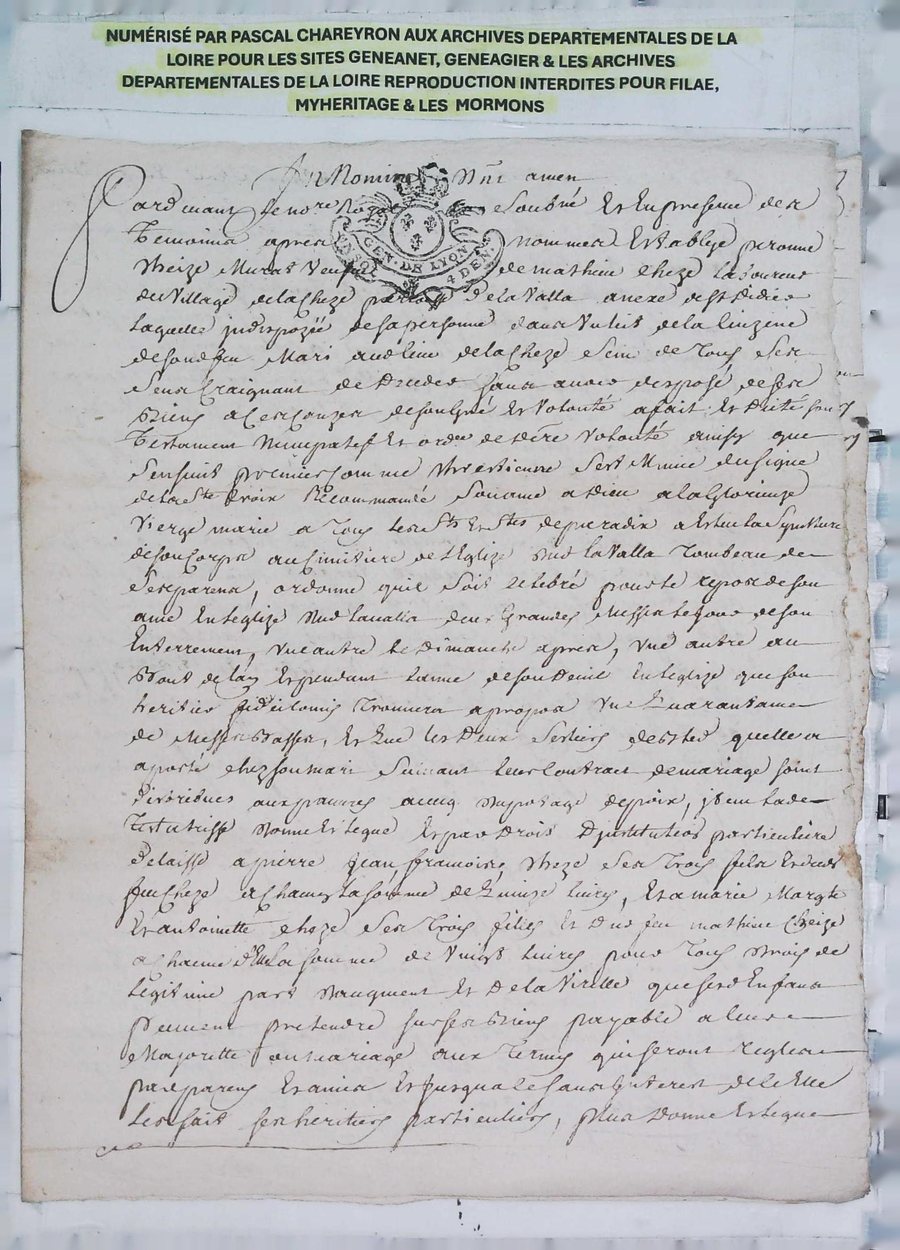 NUMÉRISÉ PAR PASCAL CHAREYRON AUX ARCHIVES DEPARTEMENTALES DE LA
LOIRE POUR LES SITES GENEANET, GENEAGIER & LES ARCHIVES
DEPARTEMENTALES DE LA LOIRE REPRODUCTION INTERDITES POUR FILAE,
MYHERITAGE & LES MORMONS
In Nomine Dni amen
Pardevant le nore Royal Soubné Et En presence des
Temoins apres nommes Establye personne
UN SOL GEN. DE LYON 4 DEN
Cheize Murat Veufve de mathieu cheze Laboureur
du Village de la Cheze parroisse de la Valla anexe de St Didier
Laquelle indispozée de sa personne dans un lit de la cuizine
de son dfeu Mari au dlieu de la Cheze Saine de Tous Ses
Sens Craignant de Deceder sans avoir disposé de ses
Biens a Ces Causes de son gré Et Volonté a fait Et Dicté son
Testament Nuncupatif Et ordce de dere Volonté ainsy que
Sensuit premier comme Chrestienne Sest Munie du signe
de la Ste Croix Recommandé Son ame a Dieu a la Glorieuze
Vierge marie a Tous les Sts Et Stes de paradix a Esleu la Sepulture
de son Corps au Cimitiere de l'Eglize dud la Valla Tombeau de
Ses parens, ordonne quil Soit celebré pour le repos de son
ame En leglize dud lavalla deux Grandes Messes le jour de son
Enterrement, une autre le Dimanche apres, une autre au
Bout de lan Et pendant lanné de son Deuil En leglize que son
heritier Trouvera a propos une Quarantaine
de Messes Basses, Et Que les Deux Sestiers de bled quelle a
aporté chez son mari Suivant leur Contrat de mariage soint
distribues aux pauvres avecq un potage de poix, item lade
Testatrisse Donne Et Legue Et par Droit D'institution particuliere
delaisse a pierre jean francois Cheze Ses Trois fils Et dud
feu Cheze a Chacung La somme de Quinze livres, Et a marie Margte
Et antoinette cheze Ses Trois filles Et Dud feu mathieu Cheize
a Chacune d'Elles La somme de Vingt livres pour Tous Drois de
Legitime part D'augment Et De la Virille que sesd Enfans
peuvent pretendre sur ses Biens payable a leurs
Majorette ou mariage aux Termes qui seront regles
par parens Et amis Et jusqua Ce sans Interest de Ce Elle
Les fait ses heritiers particuliers, plus Donne Et Legue